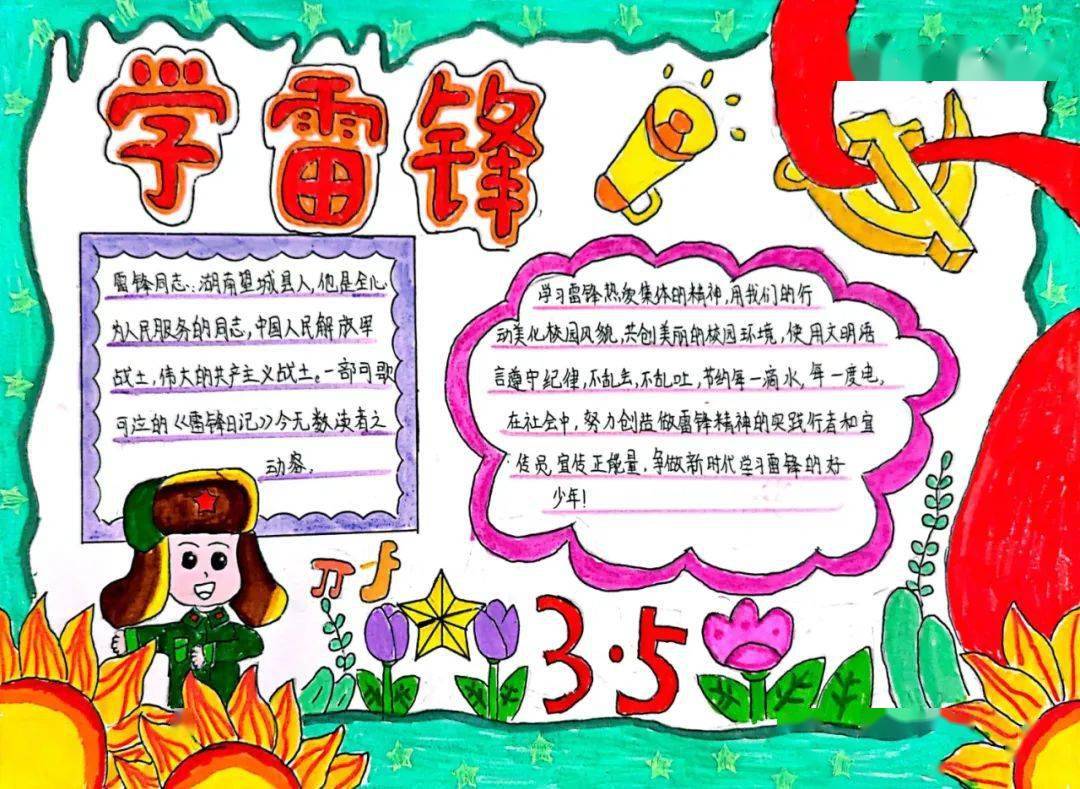 学雷锋
雷锋同志：湖南望城县人，他是全心
为人民服务的同志，中国人民解放军
战士，伟大的共产主义战士。一部可歌
可泣的《雷锋日记》令无数读者之
动容。
学习雷锋热爱集体的精神，用我们的行
动美化校园风貌，共创美丽的校园环境，使用文明语
言遵守纪律，不乱丢，不乱吐，节约每一滴水，每一度电，
在社会中，努力创造做雷锋精神的实践行者和宣
传员，宣传正能量，争做新时代学习雷锋的好
少年！
3·5